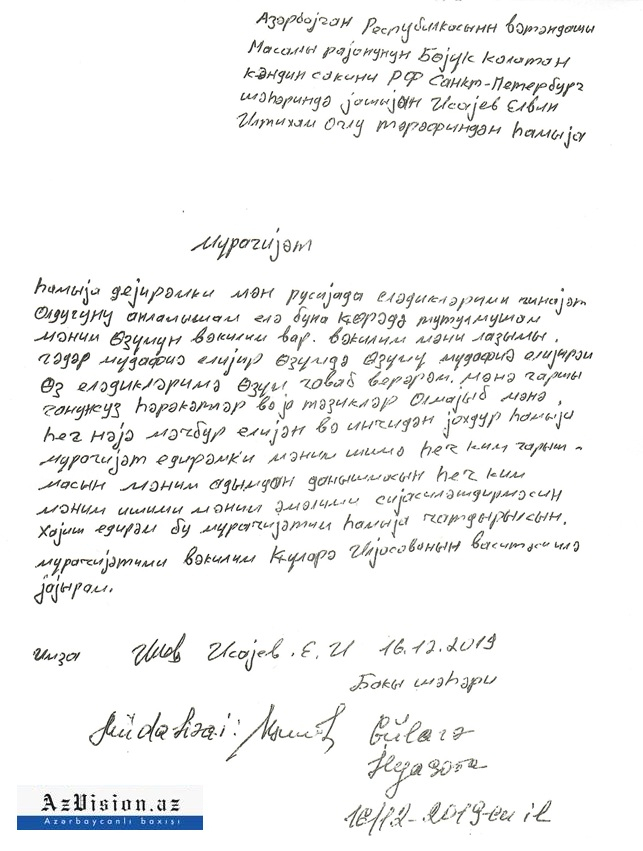 Азәрбојҹан Республикасынн вәтәндашы
Масаллы рајонунун Бөјүк колатан
кәндин сакини РФ Санкт-Петербург
шәһәриндә јашыјан Исајев Елвин
Илтихам Оғлу тәрәфиндән һамыја
мүраҹијәт
һамыја дејирәмки мән русијада еләдикләрими ҹинајәт
Олдуғуну анламышам елә буна ҝөрәдә тутулмушам
мәним Өзүмүн вәкилим вар. вәкилим мәни лазымы.
гәдәр мүдафиә елијир Өзүмдә Өзүмү мүдафиә елијирәм
Өз еләдикләримә Өзүм ҹаваб верәрәм. мәнә гаршы
ганунсуз һәрәкәтләр вә ја тәзјигләр Олмајыб мәнә,
һеч нәјә мәҹбур елијән вә инҹидән јохдур һамыја
мүраҹијәт едирәмки мәним ишимә һеч ким гарыш-
масын мәним адымдан данышмасын һеч ким
мәним ишими мәним әмәлими сијасиләшдирмәсин
Хаһиш едирәм бу мүраҹијәтим һамыја чатдырылсын.
мүраҹијәтими вәкилим Ҝүларә Илјасованын васитәси илә
јајырам.
имза Исајев.Е.И 16.12.2019
Бакы шәһәри
Müdafiəçi: Gülarə
İlyasova
16/12-2019-cu il
AzVision.az
Azərbaycanlı baxışı